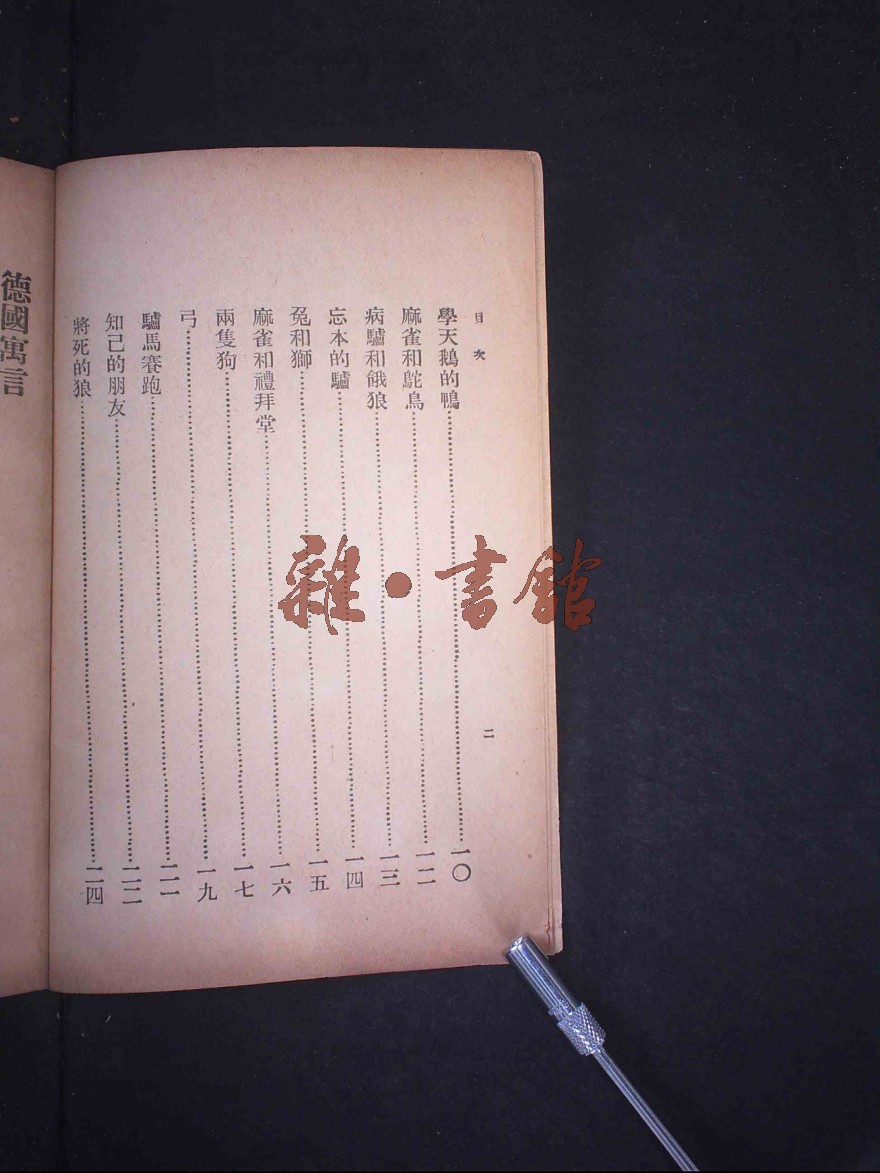 目次
二
學天鵝的鴨……一〇
麻雀和鴕鳥……一二
病驢和餓狼……一三
忘本的驢……一四
兔和獅……一五
麻雀和禮拜堂……一六
兩隻狗……一七
弓……一九
驢馬賽跑……二一
知己的朋友……二二
將死的狼……二四
德國寓言
雜·書館